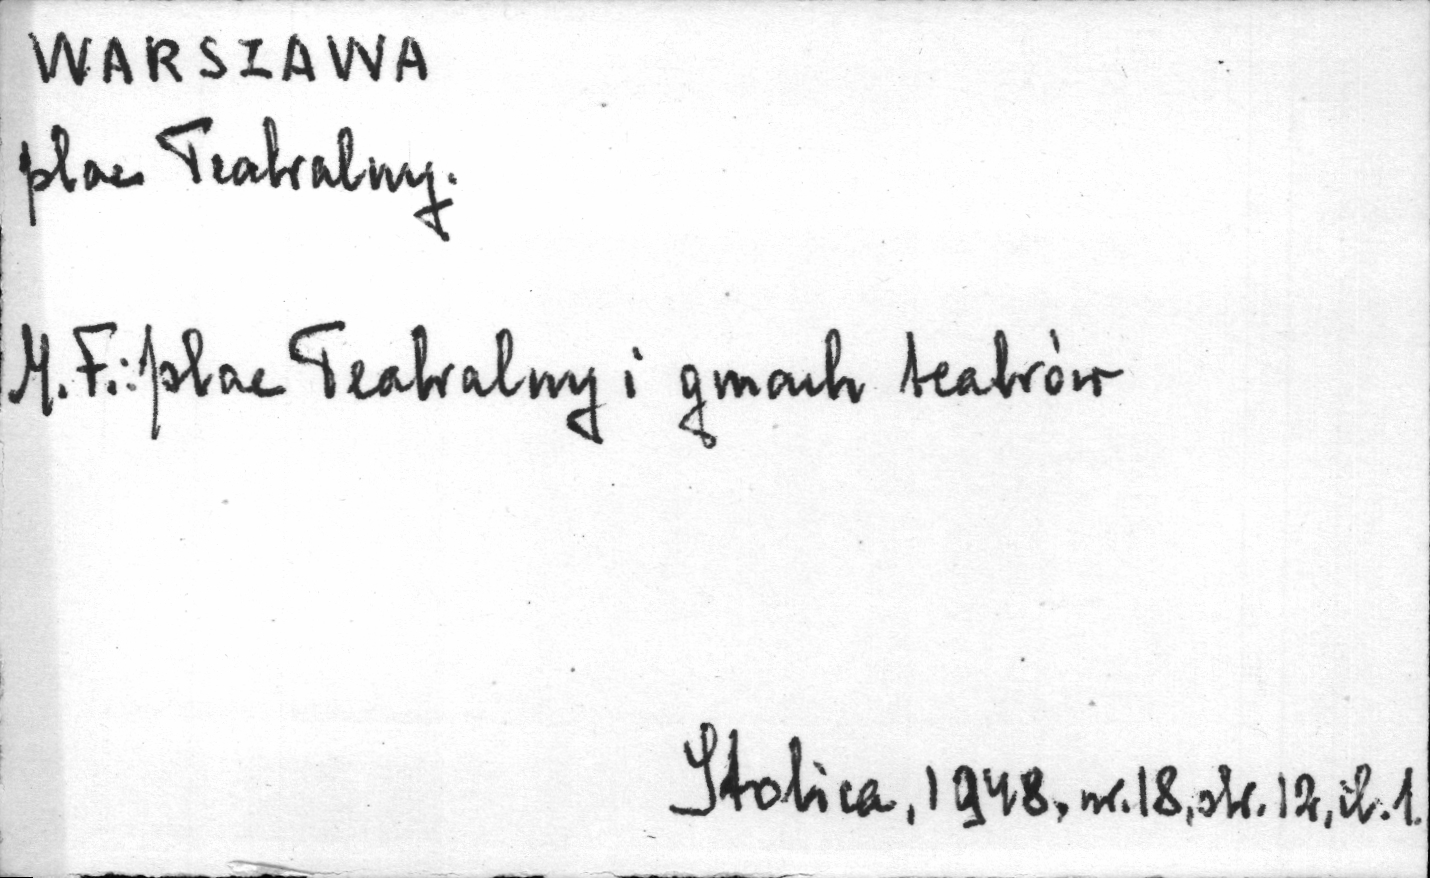 WARSZAWA
plac Teatralny.
M.F.: plac Teatralny i gmach teatrów
Stolica, 1948, nr. 18, str. 12, il. 1.